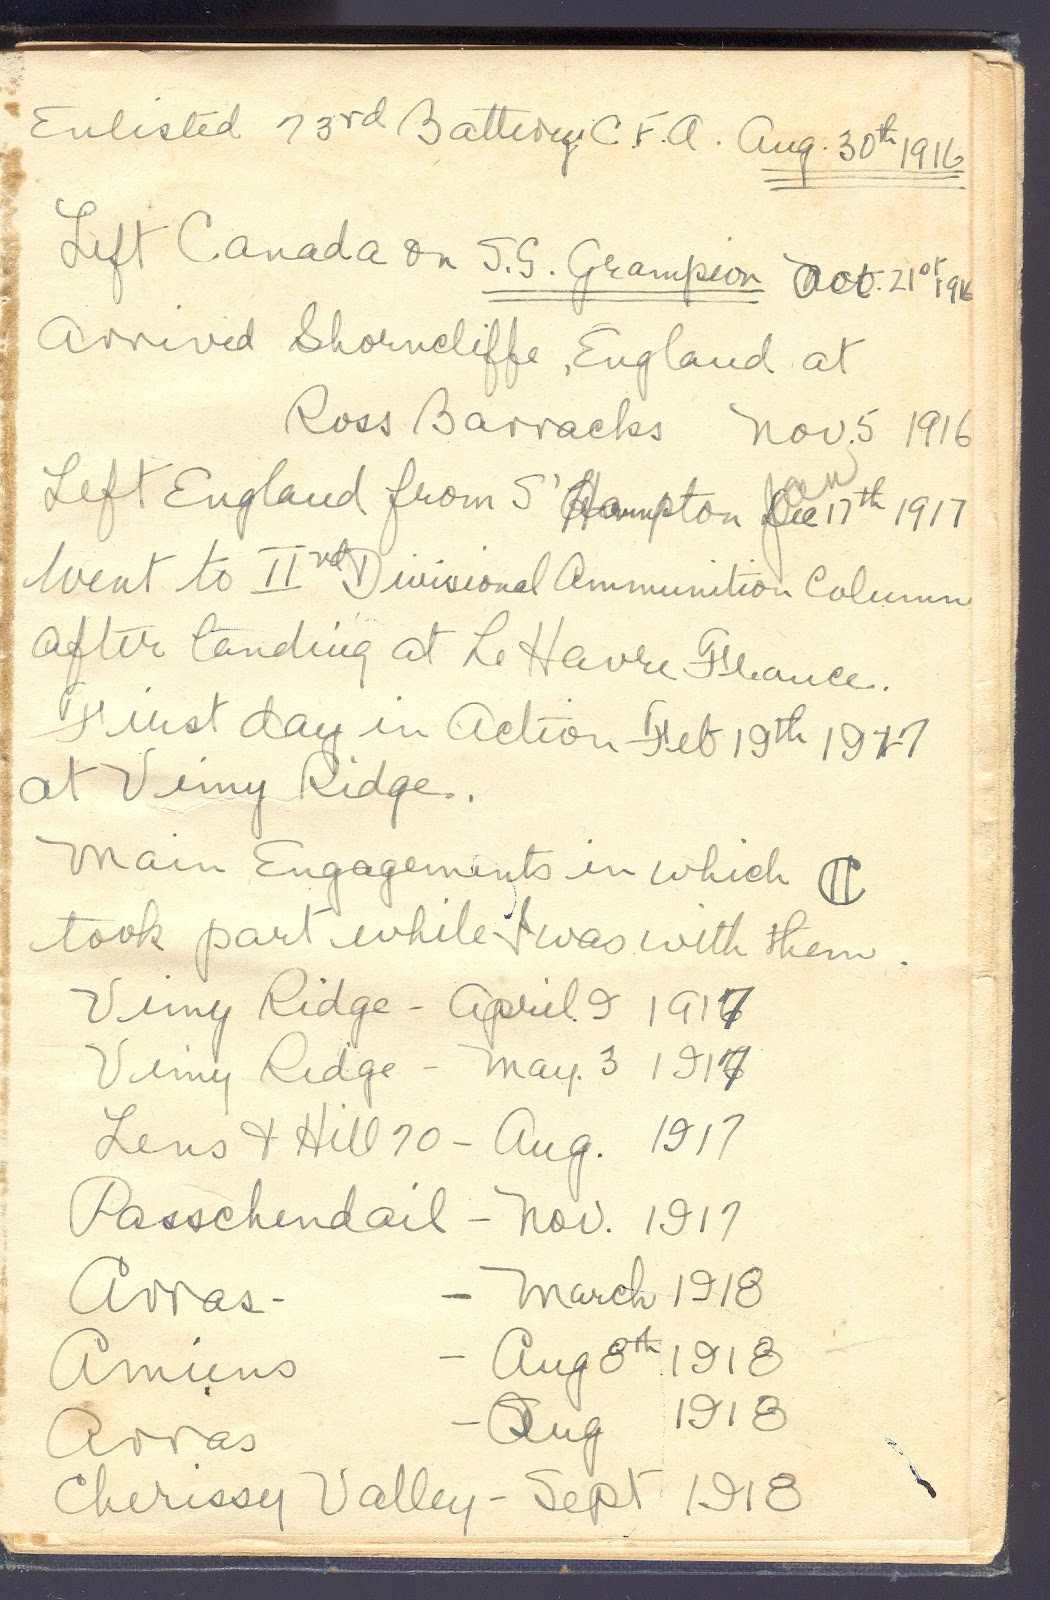 Enlisted 73rd Battery C.F.A. Aug. 30th 1916
Left Canada on S.S. Grampion Oct. 21st 1916
Arrived Shorncliffe, England at
Ross Barracks Nov. 5 1916
Left England from S'Hampton Jan 17th 1917
Went to IInd Divisional Ammunition Column
after landing at Le Havre France.
First day in Action Feb 19th 1917
at Vimy Ridge.
Main Engagements in which
took part while I was with them.
Vimy Ridge - April. 9 1917
Vimy Ridge - May. 3 1917
Lens & Hill 70 - Aug. 1917
Passchendail - Nov. 1917
Arras - - March 1918
Amiens - Aug 8th 1918
Arras - Aug 1918
Cherissy Valley - Sept 1918